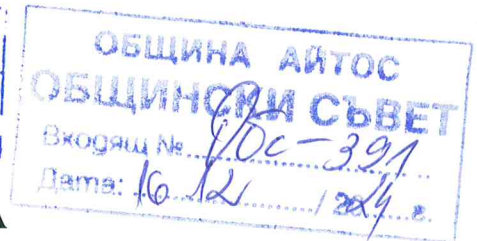 ОБЩИНА АЙТОС
ОБЩИНСКИ СЪВЕТ
Входящ № ОС-391
Дата: 16 12 / 2024 г.